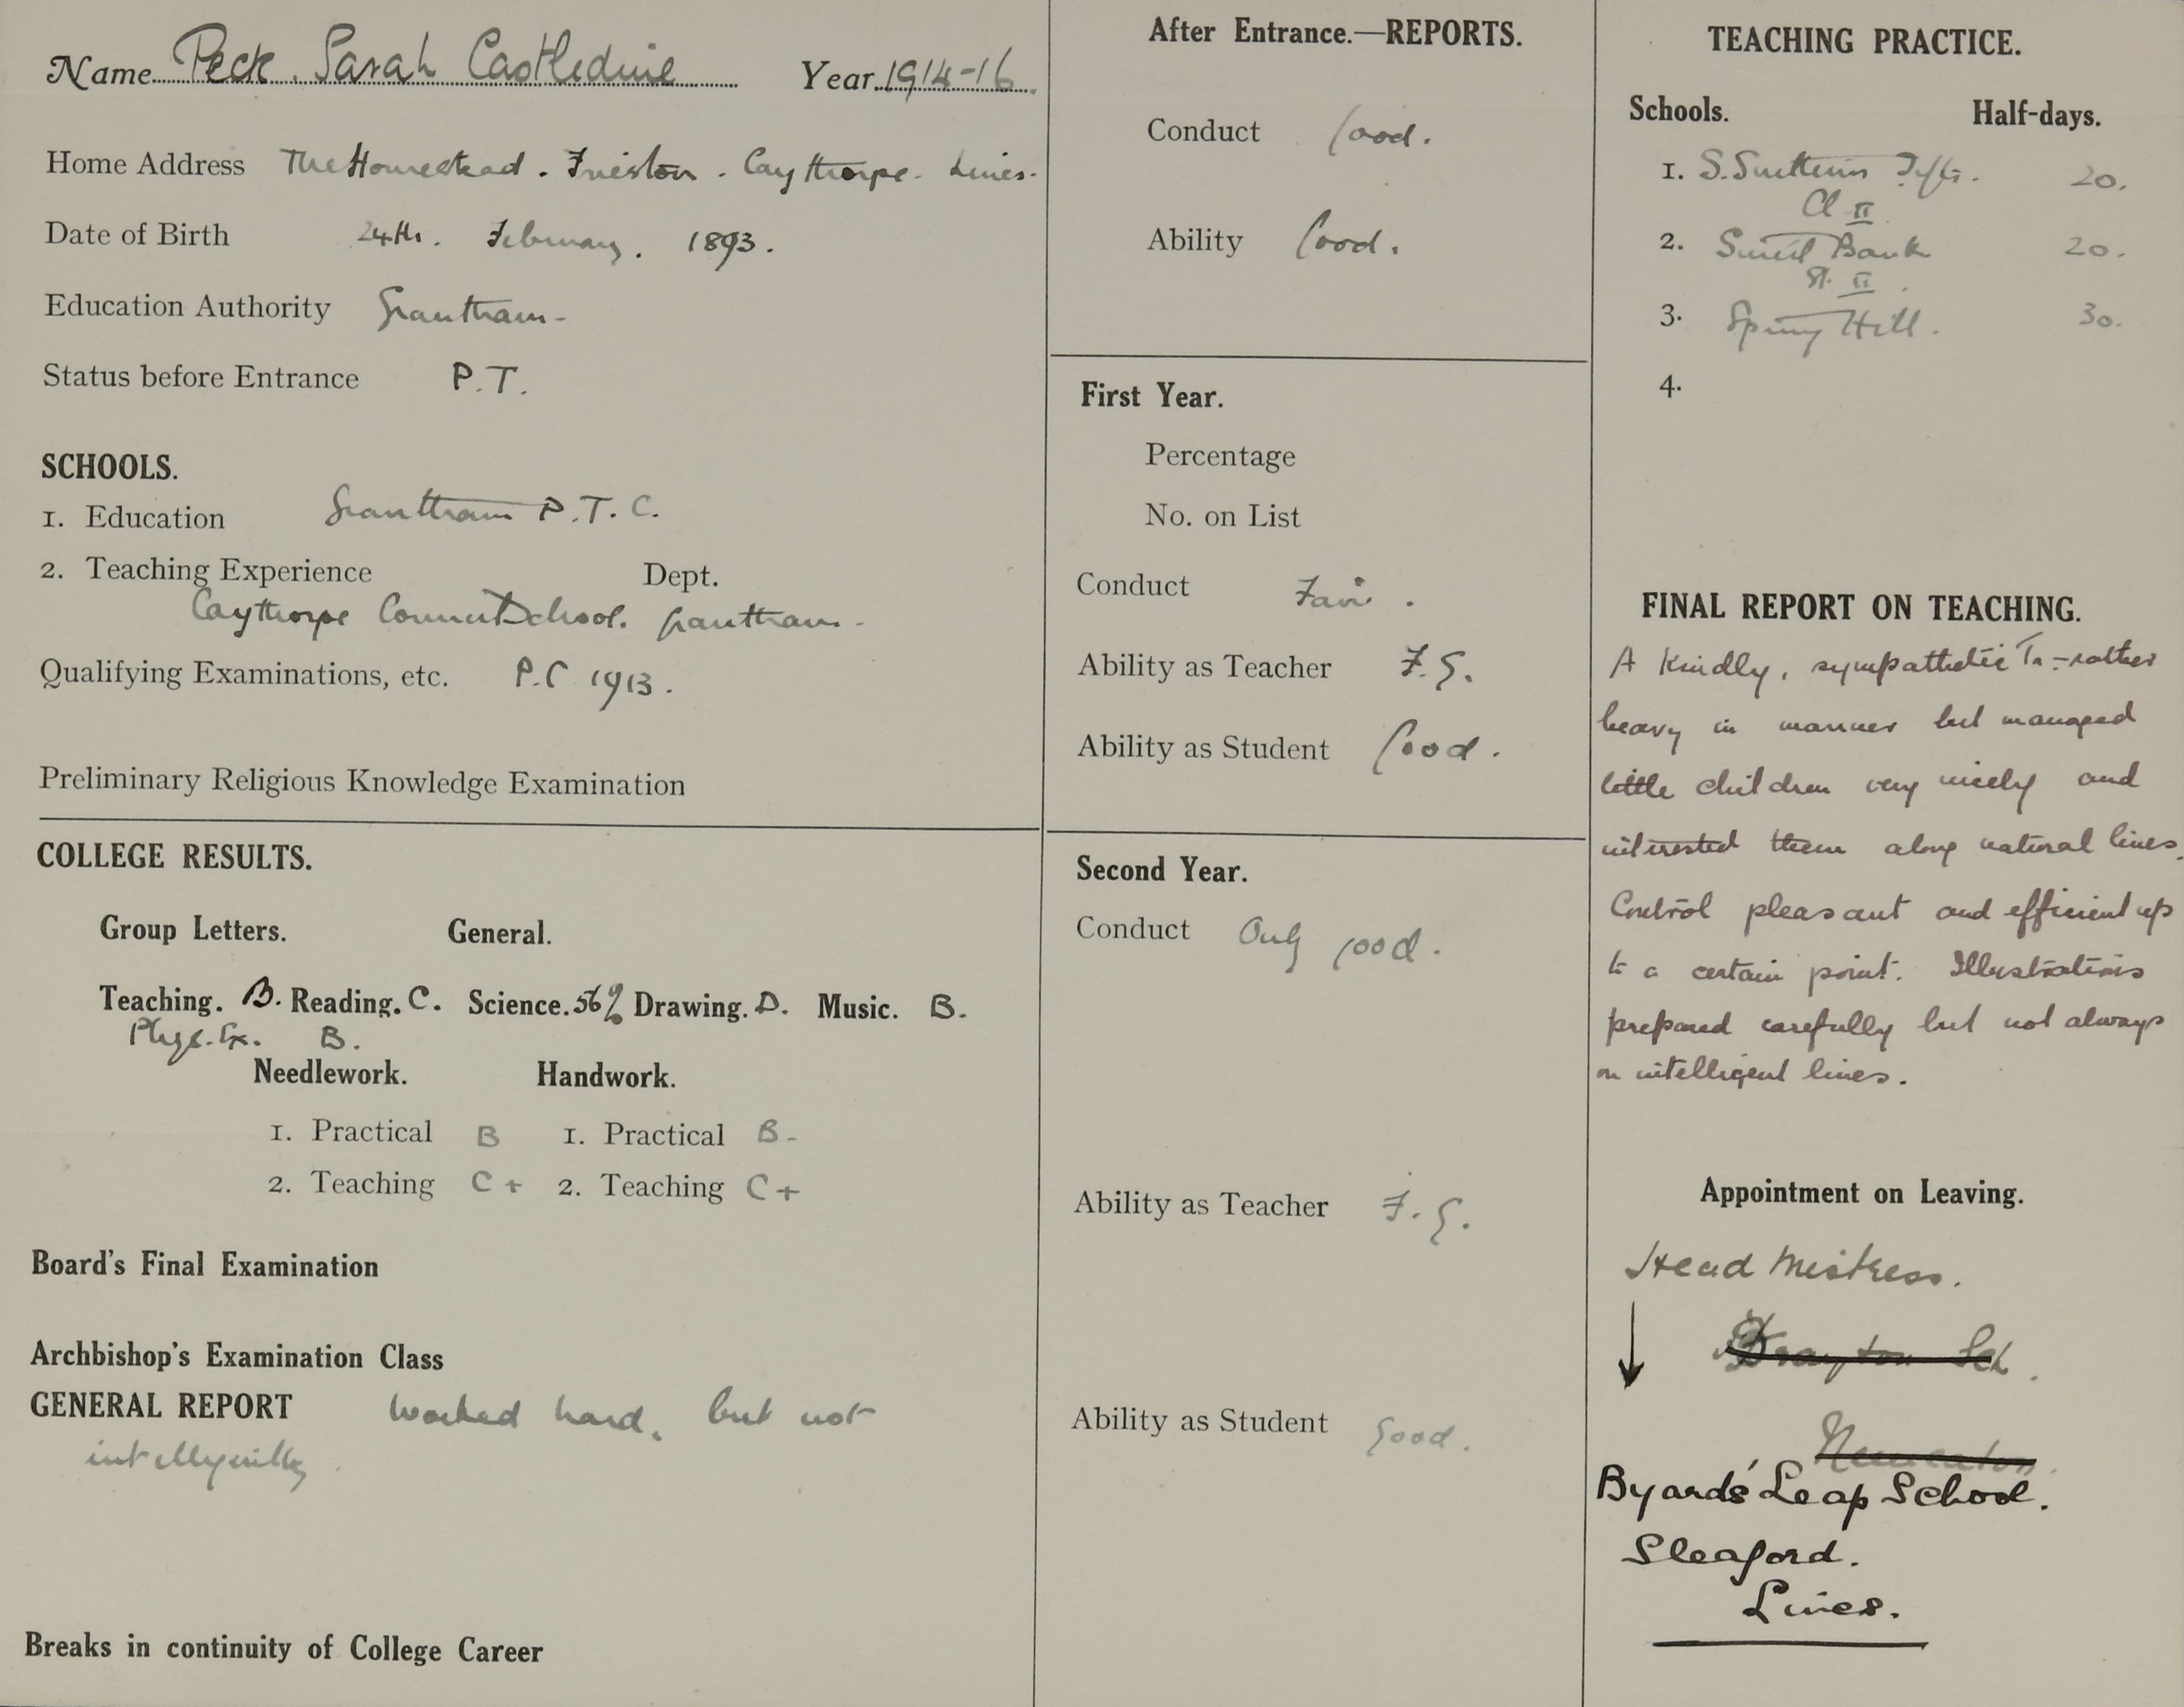 Name Peck. Sarah Castledine Year 1914-16.
Home Address The Homestead. Frieston. Caythorpe. Lincs.
Date of Birth 24th. February. 1893.
Education Authority Grantham-
Status before Entrance P.T.
SCHOOLS.
1. Education Grantham P.T.C.
2. Teaching Experience Dept.
Caythorpe Council School. Grantham-
Qualifying Examinations, etc. P.C 1913.
Preliminary Religious Knowledge Examination
COLLEGE RESULTS.
Group Letters. General.
Teaching. B. Reading. C. Science. 56% Drawing. D. Music. B.
Phys. Ex. B.
Needlework. Handwork.
1. Practical B 1. Practical B-
2. Teaching C+ 2. Teaching C+
Board's Final Examination
Archbishop's Examination Class
GENERAL REPORT Worked hard, but not
intelligently.
Breaks in continuity of College Career
After Entrance.—REPORTS.
Conduct Good.
Ability Good.
First Year.
Percentage
No. on List
Conduct Fair.
Ability as Teacher F.G.
Ability as Student Good.
Second Year.
Conduct Only good.
Ability as Teacher F.G.
Ability as Student Good.
TEACHING PRACTICE.
Schools. Half-days.
1. S. Swithin 20.
Cl II
2. Bank 20.
St. II.
3. Spring Hill. 30.
4.
FINAL REPORT ON TEACHING.
A kindly, sympathetic Tr - rather
heavy in manner but managed
little children very nicely and
interested them along natural lines.
Control pleasant and efficient up
to a certain point. Illustrations
prepared carefully but not always
on intelligent lines.
Appointment on Leaving.
Head Mistress.
Drayton Sch.
Byards' Leap School.
Sleaford.
Lincs.